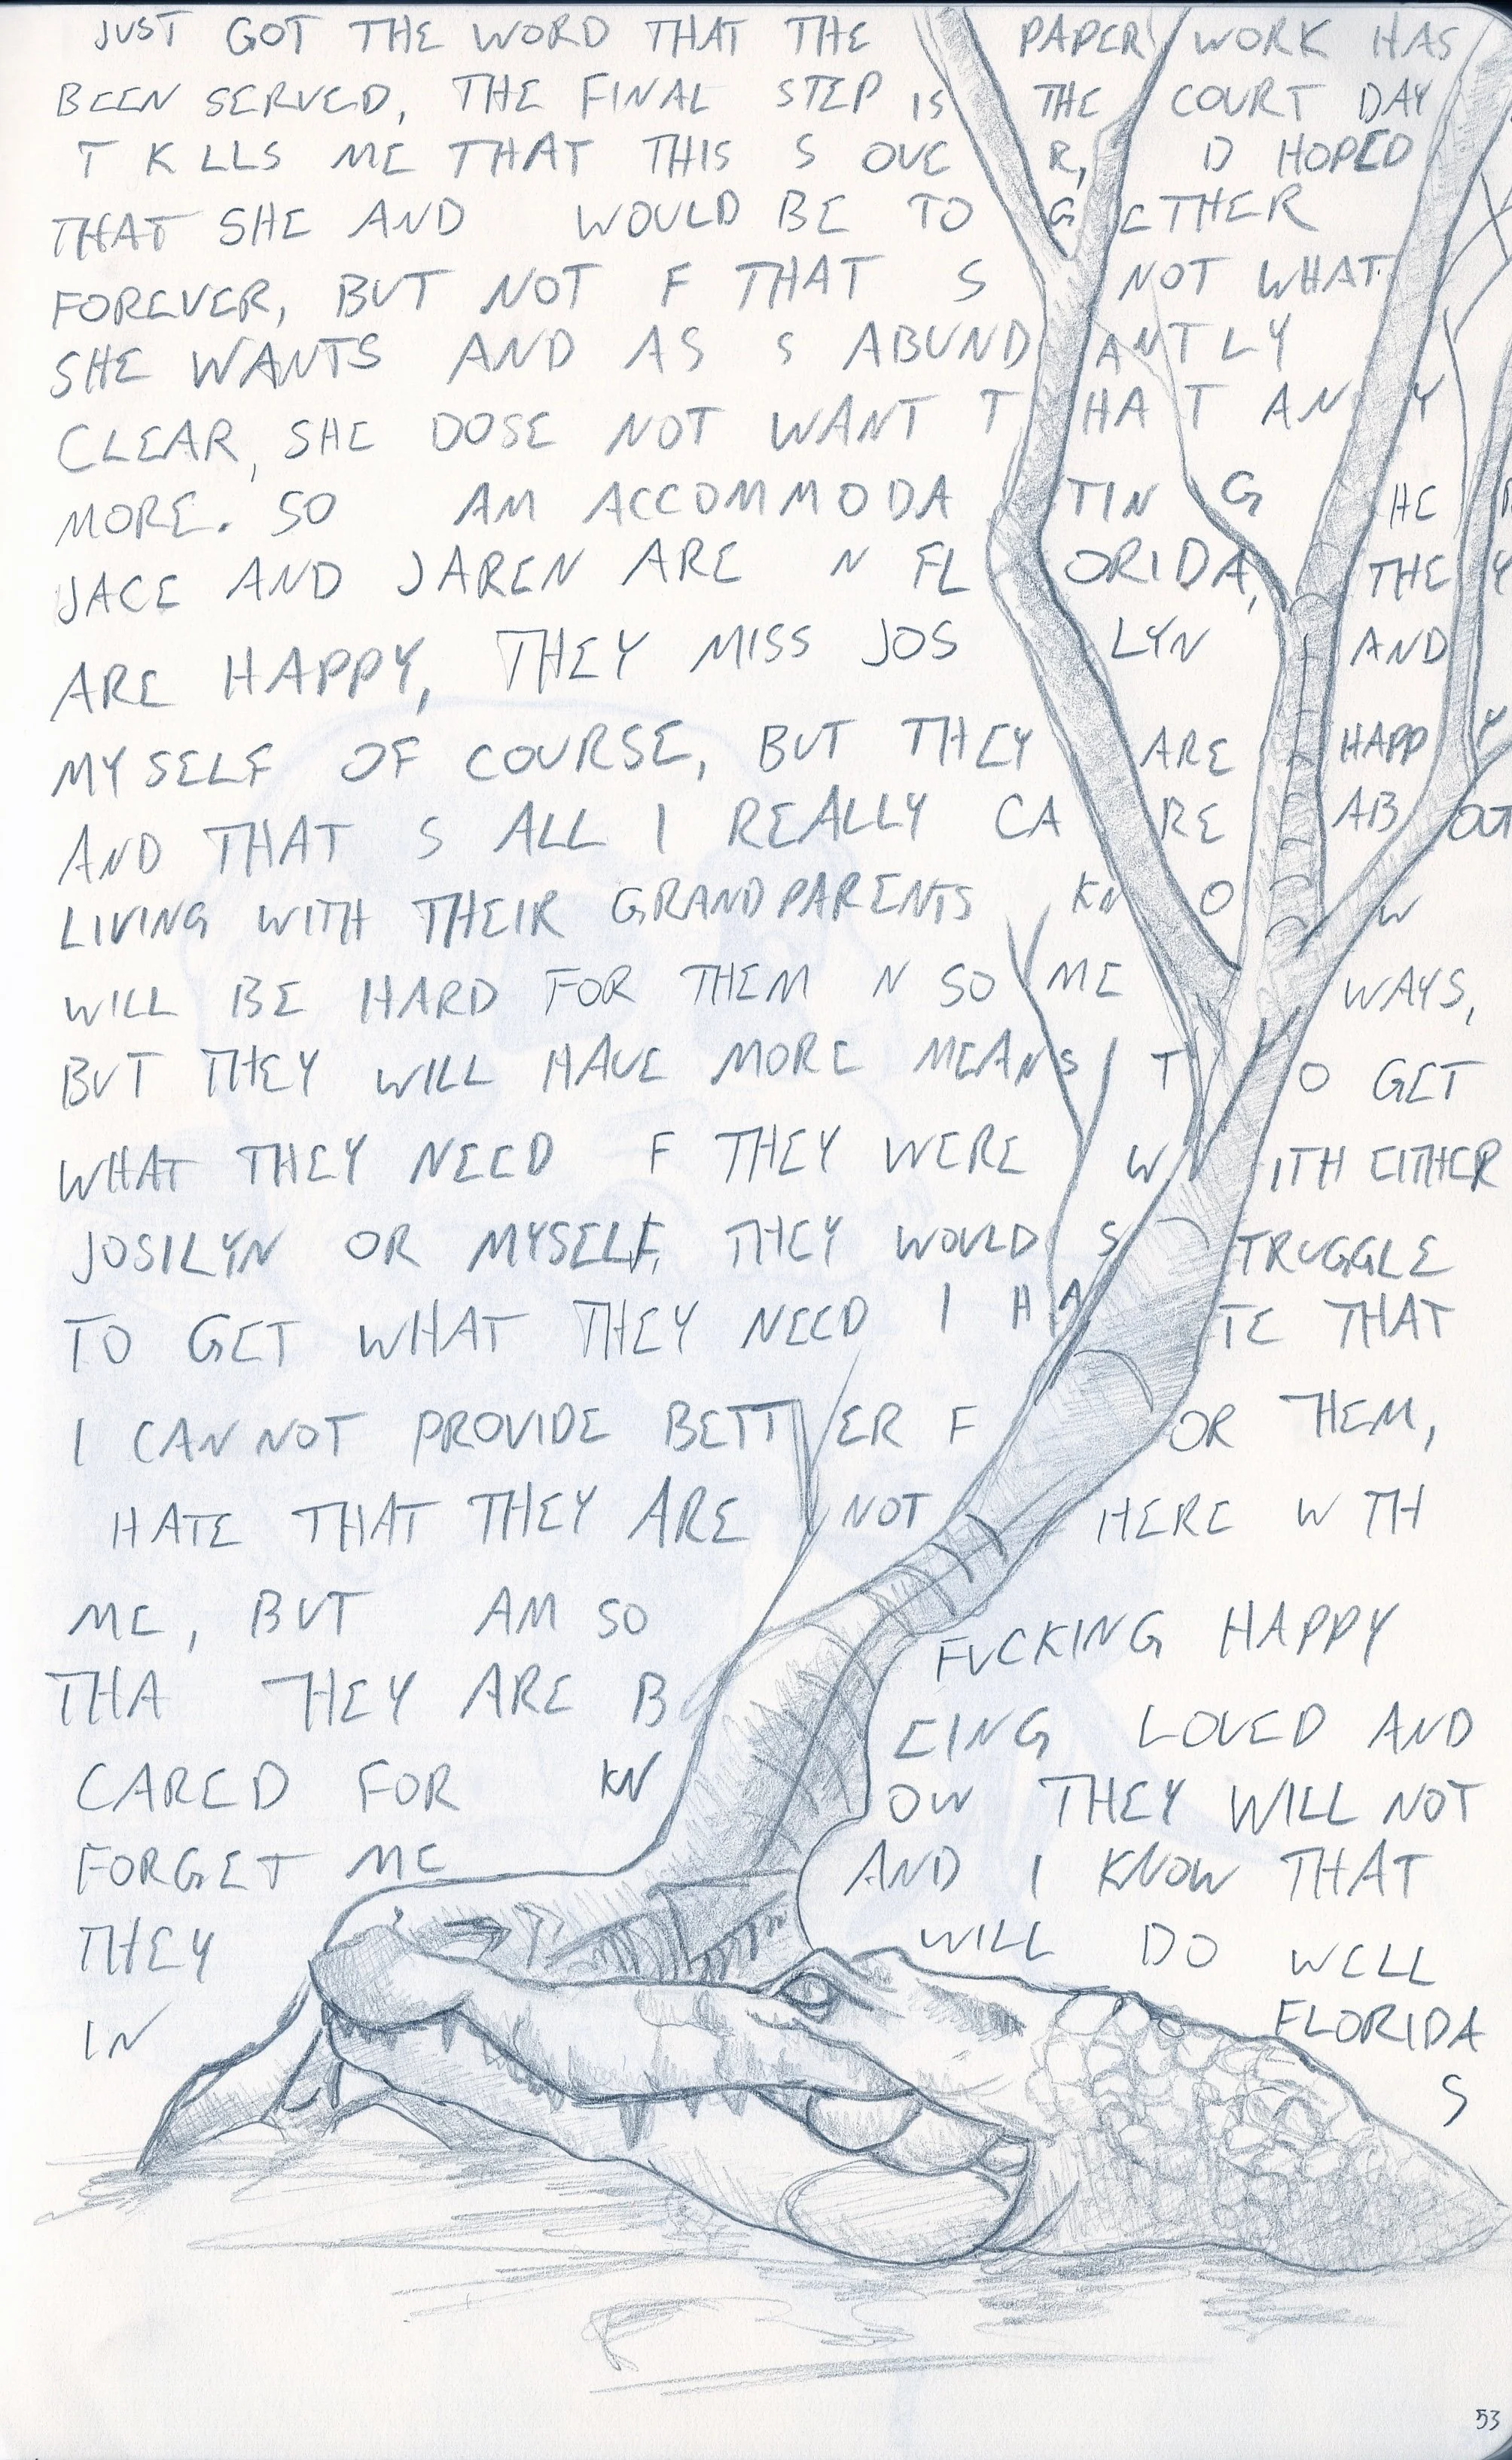 JUST GOT THE WORD THAT THE PAPER WORK HAS
BEEN SERVED, THE FINAL STEP IS THE COURT DAY
T K LLS ME THAT THIS S OVE R, D HOPED
THAT SHE AND WOULD BE TO G ETHER
FOREVER, BUT NOT F THAT S NOT WHAT
SHE WANTS AND AS S ABUND ANTLY
CLEAR, SHE DOSE NOT WANT T HA T AN Y
MORE. SO AM ACCOMMODA TIN G HE R
JACE AND JAREN ARE N FL ORIDA, THE Y
ARE HAPPY, THEY MISS JOS LYN AND
MYSELF OF COURSE, BUT THEY ARE HAPP Y
AND THAT S ALL I REALLY CA RE AB OUT
LIVING WITH THEIR GRANDPARENTS KN O W
WILL BE HARD FOR THEM N SO ME WAYS,
BUT THEY WILL HAVE MORE MEANS T O GET
WHAT THEY NEED F THEY WERE W ITH EITHER
JOSILYN OR MYSELF, THEY WOULD S TRUGGLE
TO GET WHAT THEY NEED I HA TE THAT
I CAN NOT PROVIDE BETT ER F OR THEM,
HATE THAT THEY ARE NOT HERE W TH
ME, BUT AM SO FUCKING HAPPY
THA THEY ARE B EING LOVED AND
CARED FOR KN OW THEY WILL NOT
FORGET ME AND I KNOW THAT
THEY WILL DO WELL
IN FLORIDA
S
53